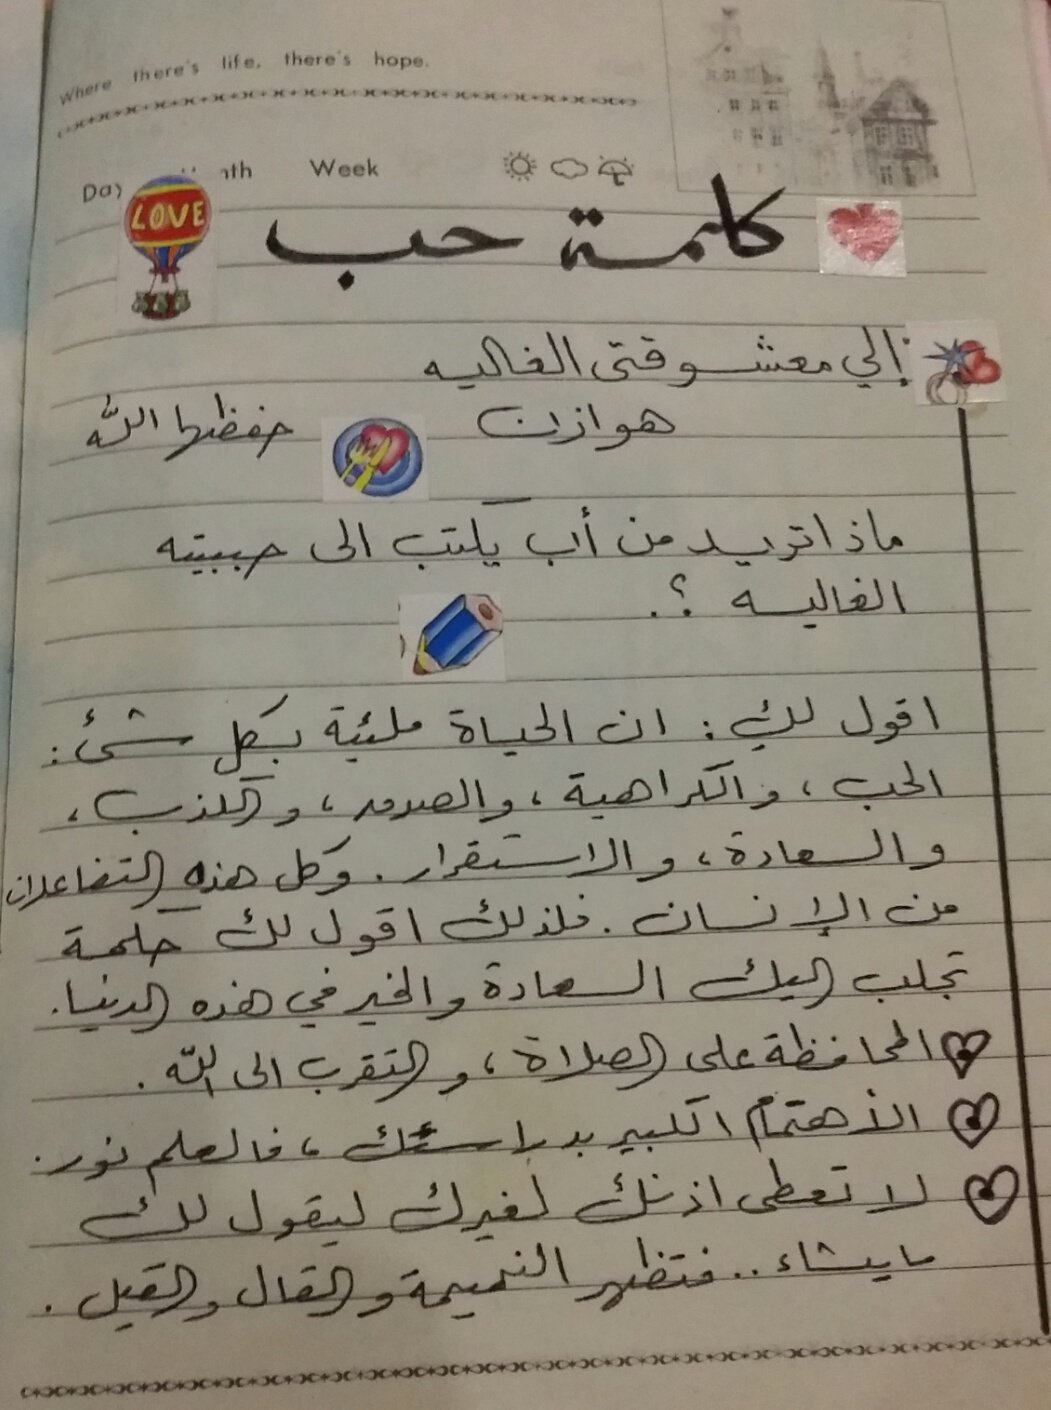 Where there's life, there's hope.
Day Month Week
LOVE
كلمة حب
إلي معشوقتى الغاليه
هوازن حفظها الله
ماذا تريد من أب يكتب الى حبيبته
الغاليه ؟.
اقول لكِ : ان الحياة مليئة بكل شئ :
الحب ، والكراهية ، والصدق ، والكذب ،
والسعادة ، والاستقرار . وكل هذه التفاعلات
من الإنسان . فلذلك اقول لك كلمة
تجلب اليك السعادة والخير في هذه الدنيا .
المحافظة على الصلاة ، والتقرب الى الله .
الأهتمام الكبير بدراستك ، فالعلم نور .
لا تعطى اذنك لغيرك ليقول لك
مايشاء .. فتظهر النميمة والقال والقيل .